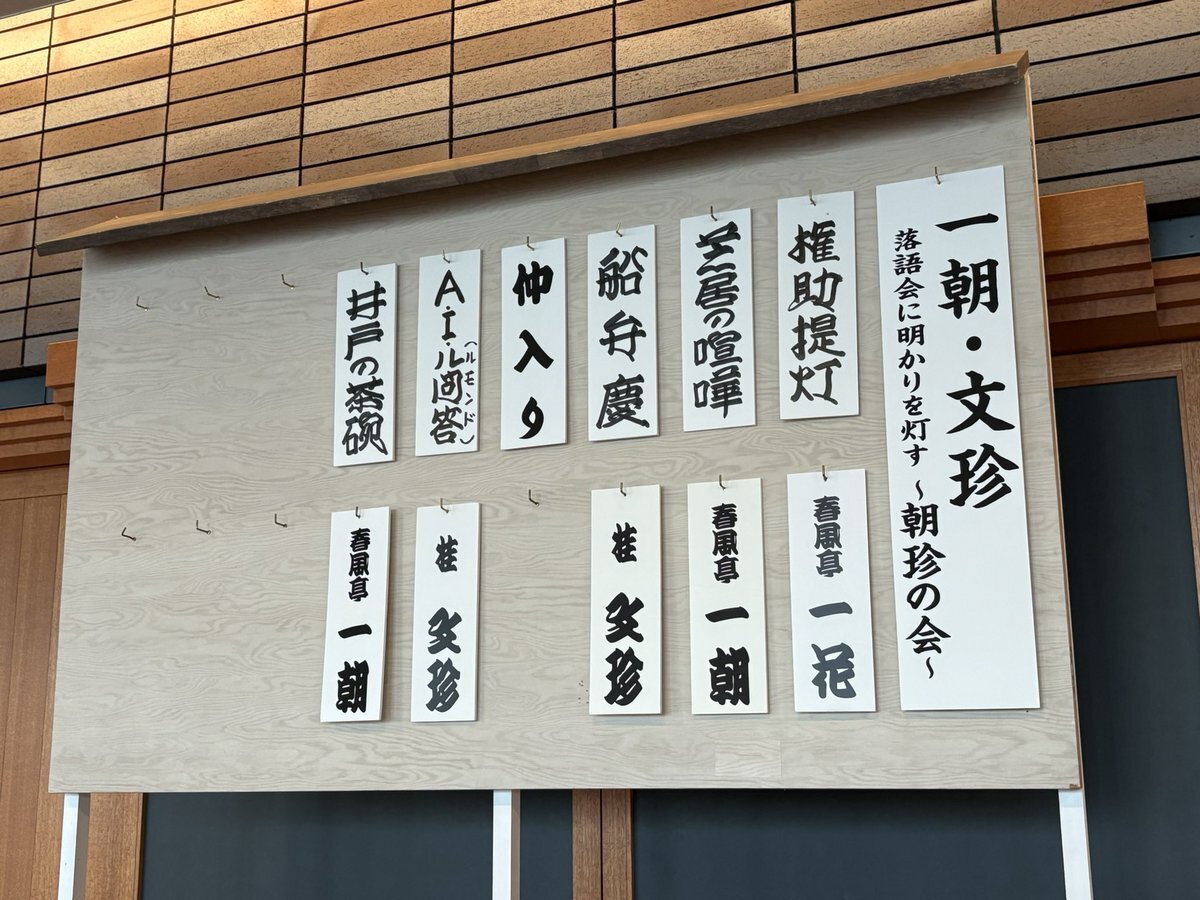 一朝・文珍
落語会に明かりを灯す ～朝珍の会～
権助提灯
春風亭 一花
芝居の喧嘩
春風亭 一朝
船弁慶
桂 文珍
仲入り
A・I・ル問答(ルモンド)
桂 文珍
井戸の茶碗
春風亭 一朝